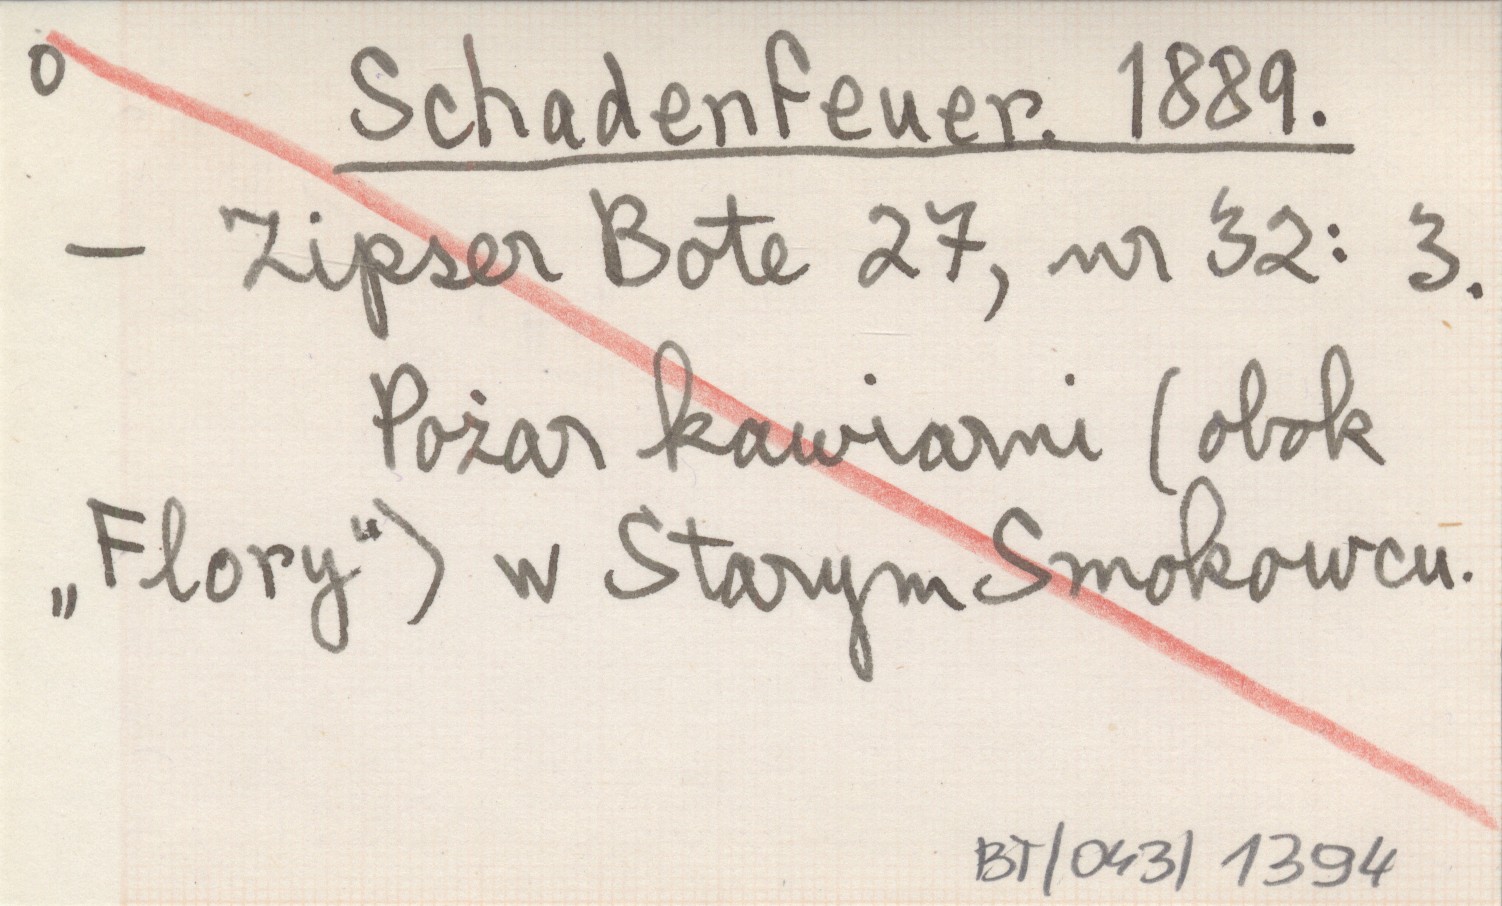 o Schadenfeuer. 1889.
— Zipser Bote 27, nr 32: 3.
Pożar kawiarni (obok
„Flory“) w Starym Smokowcu.
BT/043/1394